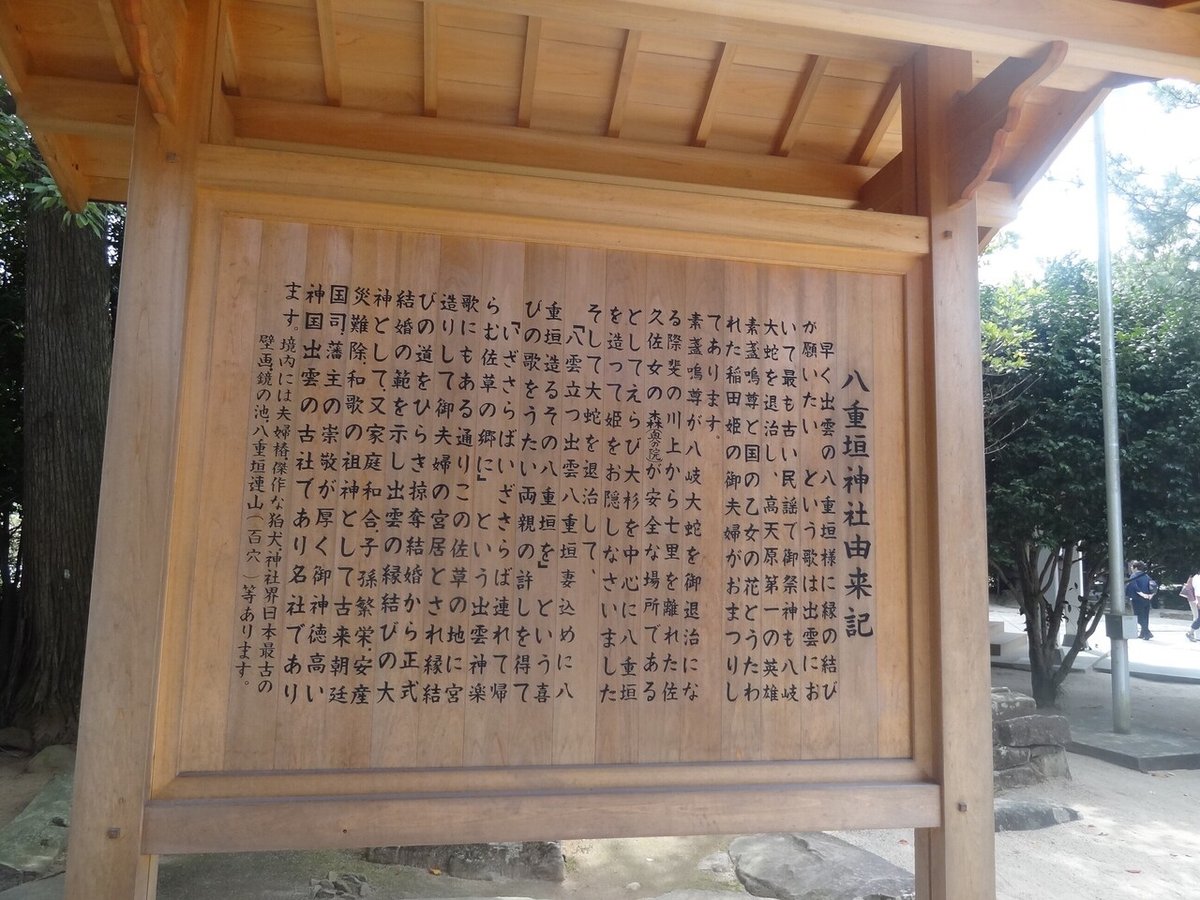 八重垣神社由来記
早く出雲の八重垣様に縁の結び
が願いたい　という歌は出雲にお
いて最も古い民謡で御祭神も八岐
大蛇を退治し、高天原第一の英雄
素盞嗚尊と国の乙女の花とうたわ
れた稲田姫の御夫婦がおまつりし
てあります。
素盞嗚尊が八岐大蛇を御退治にな
る際斐の川上から七里を離れた佐
久佐女の森(奥の院)が安全な場所である
としてえらび大杉を中心に八重垣
を造って姫をお隠しなさいました
そして大蛇を退治して、
「八雲立つ出雲八重垣妻込めに八
重垣造るその八重垣を」という喜
びの歌をうたい両親の許しを得て
「いざさらばいざさらば連れて帰
らむ佐草の郷に」という出雲神楽
歌にもある通りこの佐草の地に宮
造りして御夫婦の宮居とされ縁結
びの道をひらき掠奪結婚から正式
結婚の範を示し出雲の縁結びの大
神として、又家庭和合、子孫繁栄、安産
災難除、和歌の祖神として古来朝廷
国司、藩主の崇敬が厚く御神徳高い
神国出雲の古社であり名社であり
ます。
境内には夫婦椿傑作な狛犬、神社界日本最古の
壁画、鏡の池、八重垣連山(百穴)等あります。